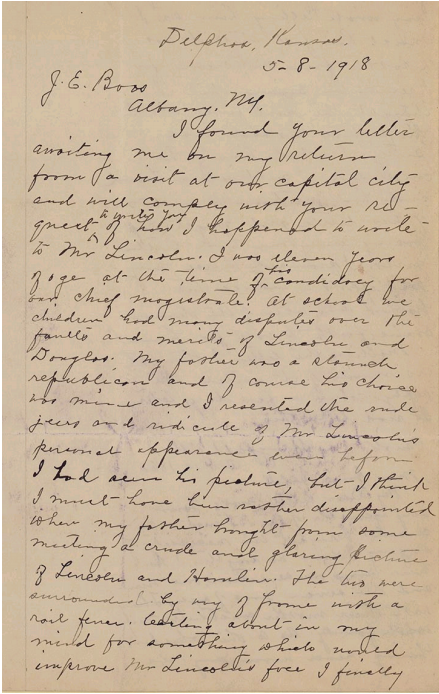 Delphos, Kansas.
5-8-1918
J. E. Boos
Albany, NY.
I found your letter
awaiting me on my return
from a visit at our capital city
and will comply with your re-
quest to write you of how I happened to write
to Mr Lincoln. I was eleven years
of age at the time of his candidacy for
our chief magistrate. At school we
children had many disputes over the
faults and merits of Lincoln and
Douglas. My father was a staunch
republican and of course his choice
was mine and I resented the rude
jeers and ridicule of Mr Lincoln's
personal appearance even before
I had seen his picture, but I think
I must have been rather disappointed
when my father bought from some
meeting a crude and glaring picture
of Lincoln and Hamlin. The two were
surrounded by way of frame with a
rail fence. Casting about in my
mind for something which would
improve Mr Lincoln's face I finally